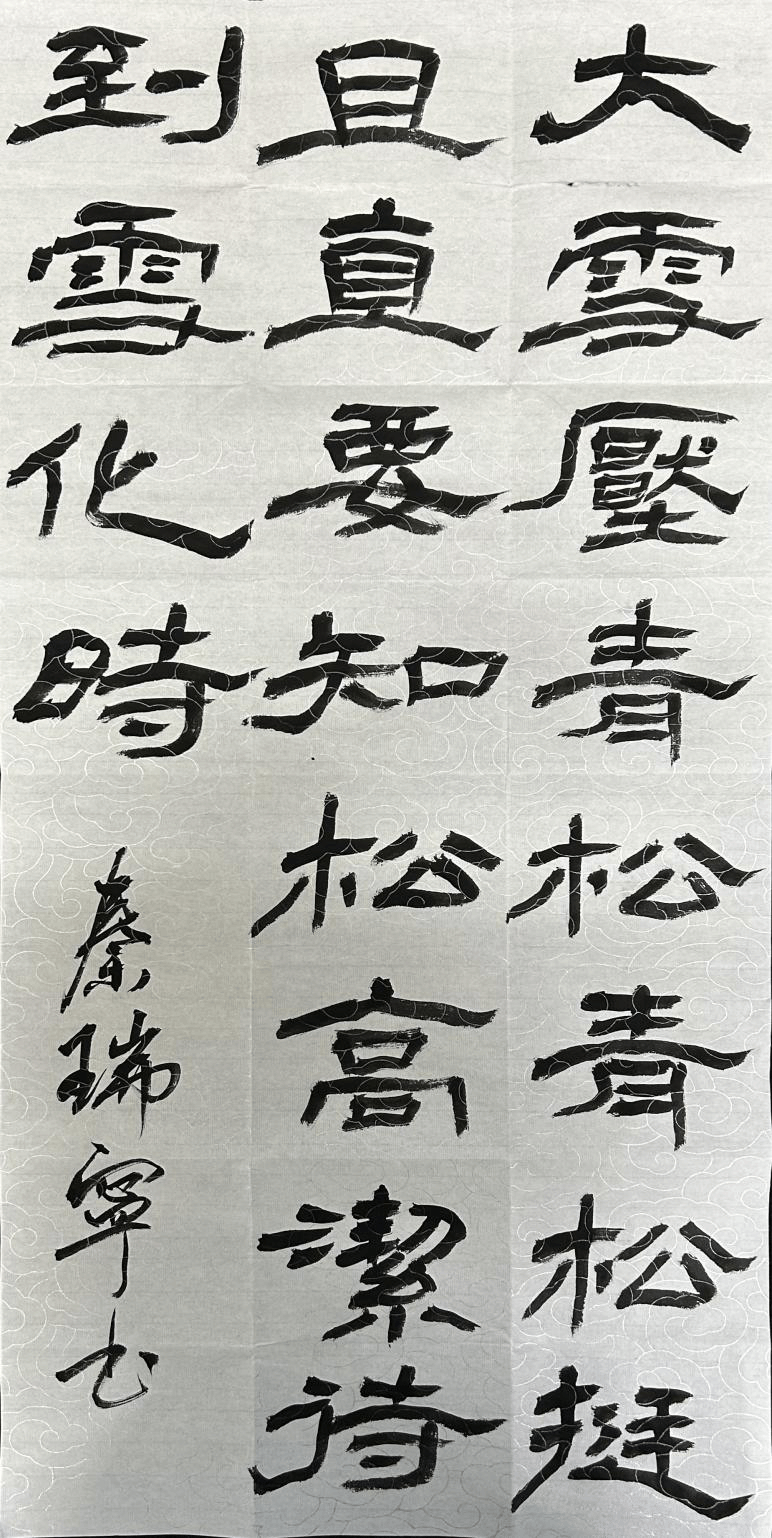 大雪壓青松青松挺
且直要知松高潔待
到雪化時
秦瑞寧书